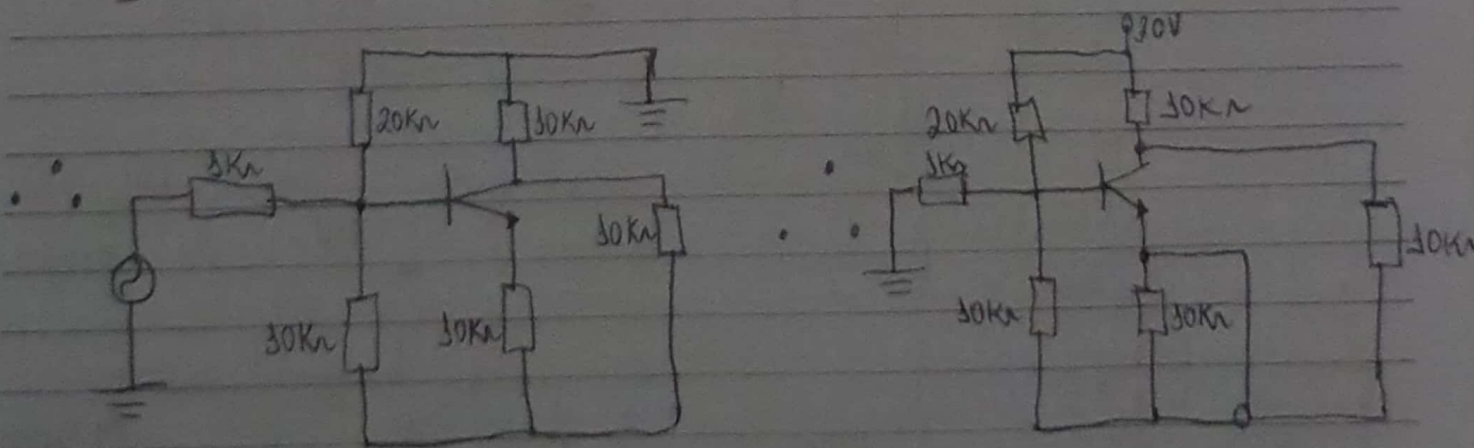 10V
20KΩ
10KΩ
1KΩ
10KΩ
10KΩ
10KΩ
20KΩ
10KΩ
1KΩ
10KΩ
10KΩ
10KΩ